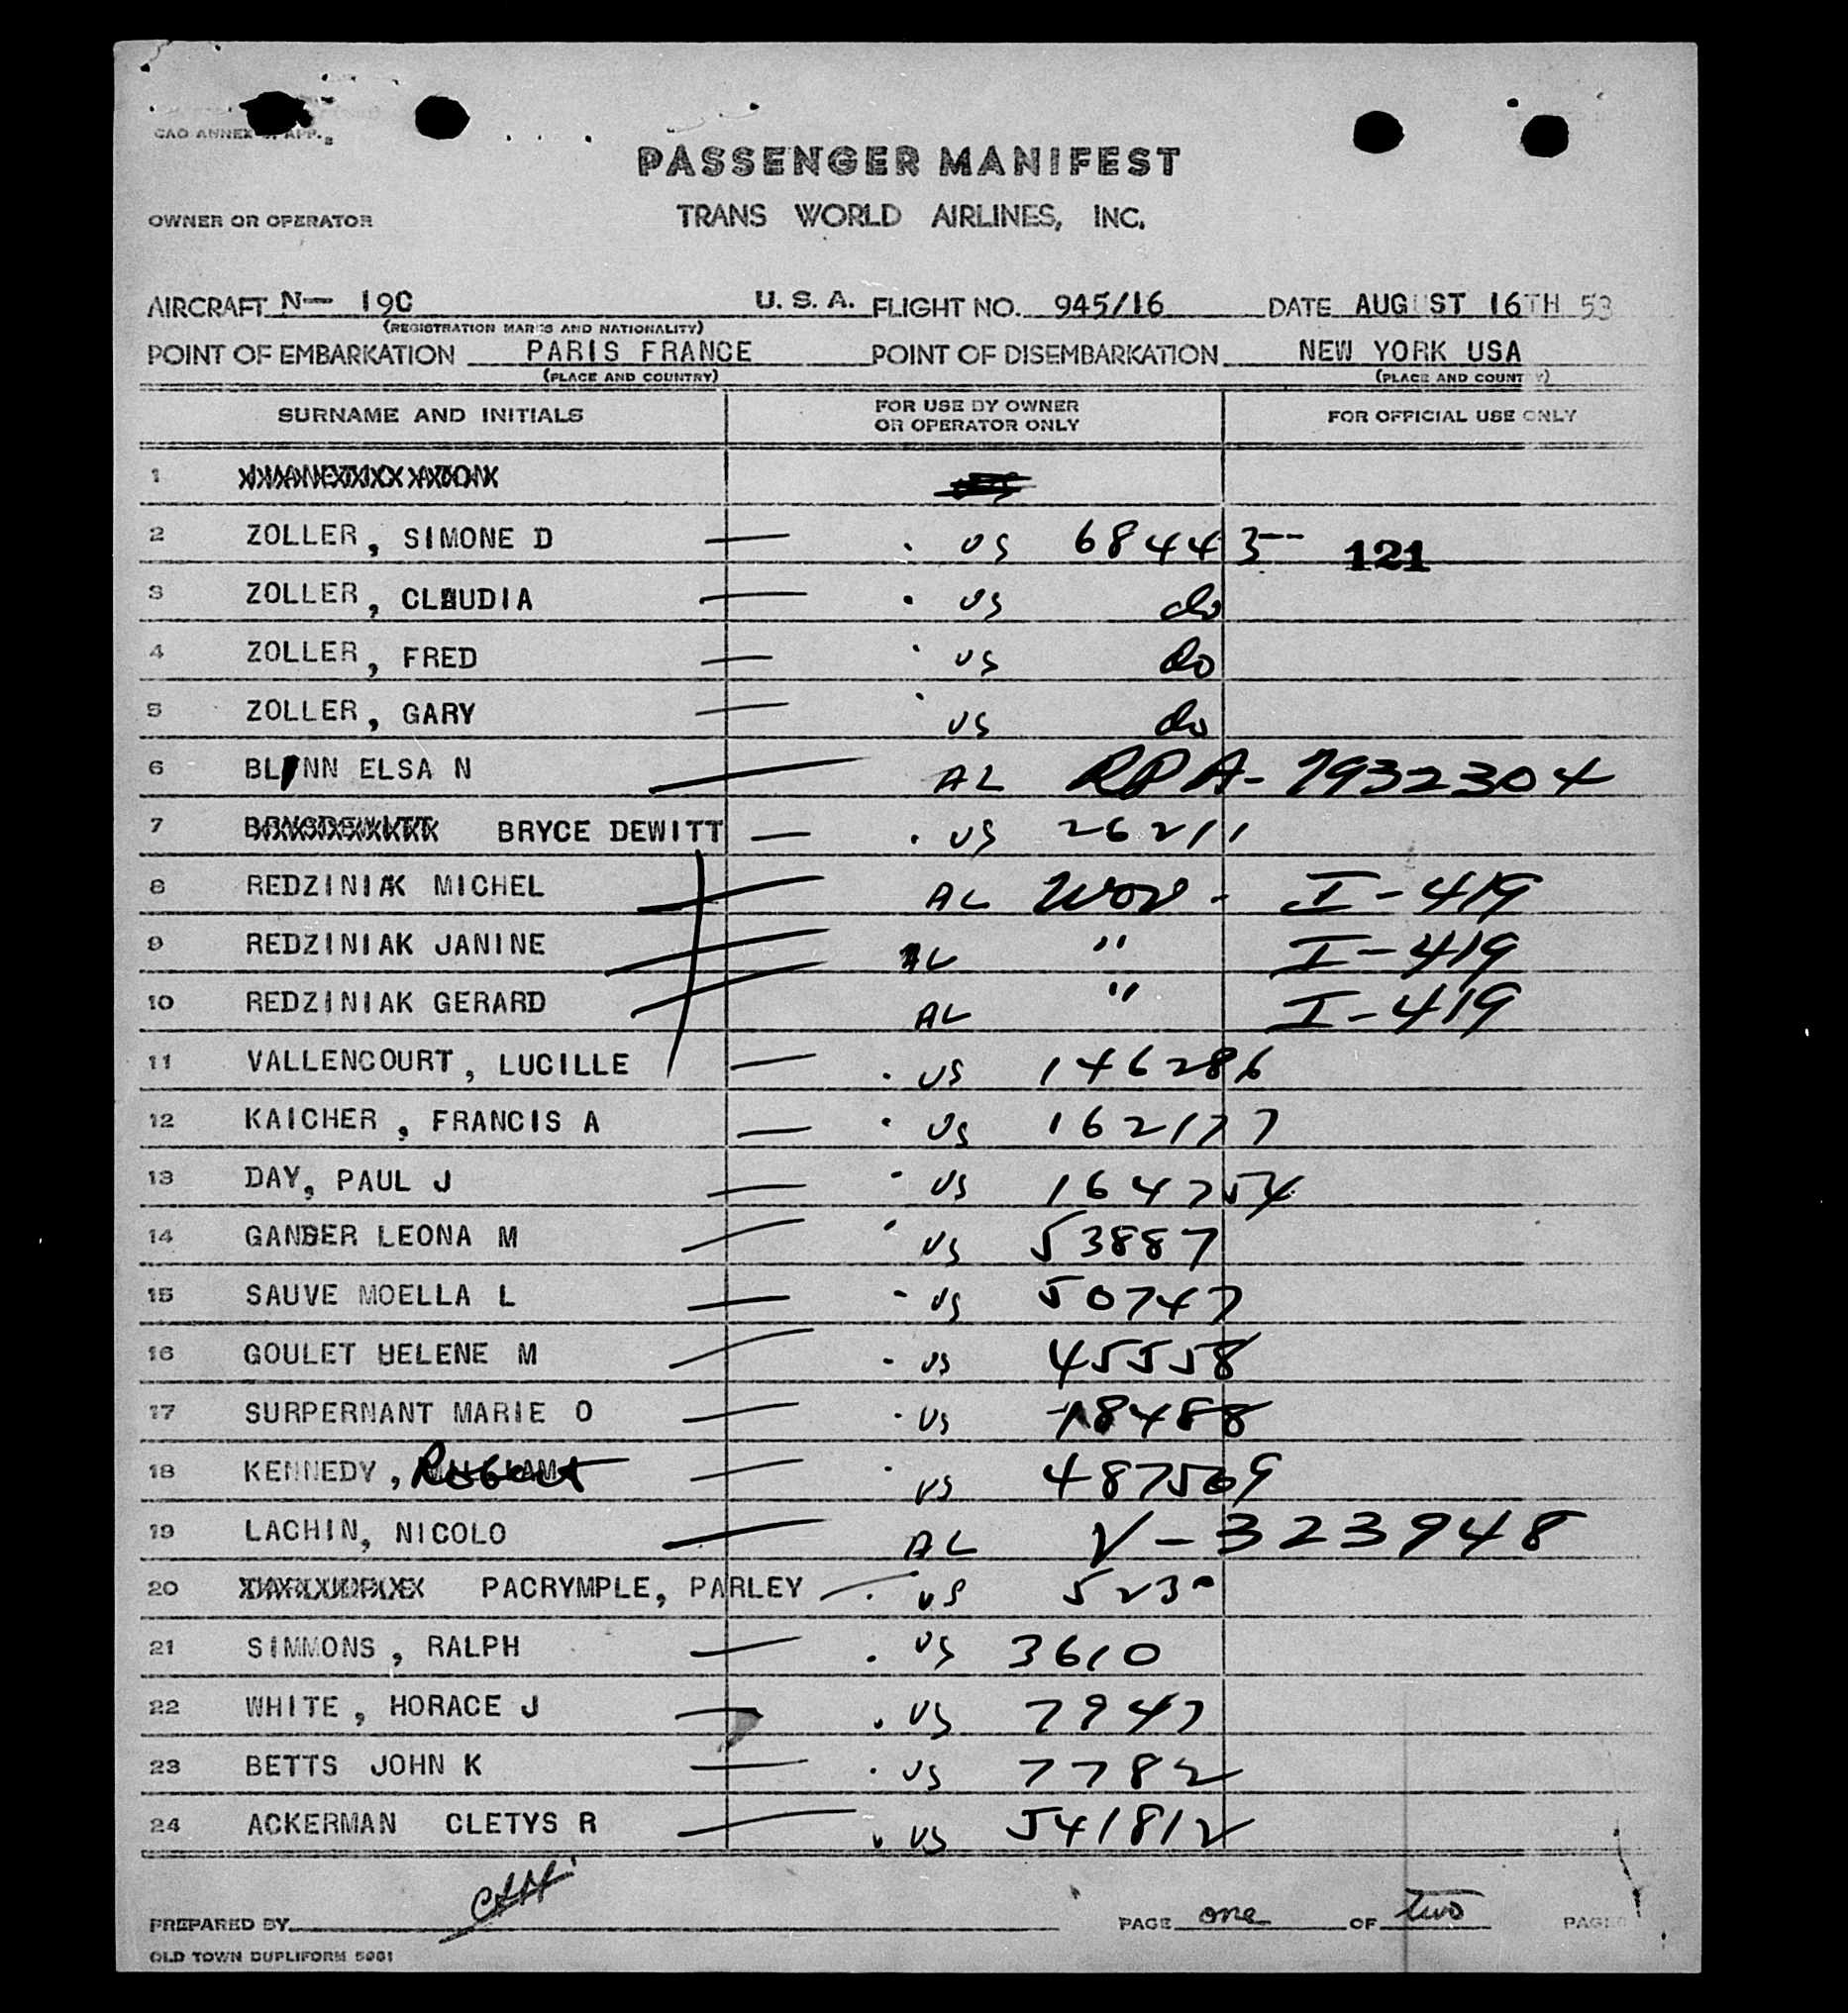 CAO ANNEX APP.
PASSENGER MANIFEST
TRANS WORLD AIRLINES, INC.
OWNER OR OPERATOR
AIRCRAFT N— 19C U. S. A. FLIGHT NO. 945/16 DATE AUGUST 16TH 53
(REGISTRATION MARKS AND NATIONALITY)
POINT OF EMBARKATION PARIS FRANCE POINT OF DISEMBARKATION NEW YORK USA
(PLACE AND COUNTRY) (PLACE AND COUNTRY)
SURNAME AND INITIALS FOR USE BY OWNER OR OPERATOR ONLY FOR OFFICIAL USE ONLY
1
2 ZOLLER, SIMONE D — . US 68443-- 121
3 ZOLLER, CLAUDIA — . US do
4 ZOLLER, FRED — . US do
5 ZOLLER, GARY — . US do
6 BLYNN ELSA N — AL RPA-7932304
7 BRYCE DEWITT — . US 26211
8 REDZINIAK MICHEL — AL WOV - I-419
9 REDZINIAK JANINE — AL " I-419
10 REDZINIAK GERARD — AL " I-419
11 VALLENCOURT, LUCILLE — . US 146286
12 KAICHER, FRANCIS A — . US 162177
13 DAY, PAUL J — . US 164754
14 GANDER LEONA M — . US 53887
15 SAUVE MOELLA L — . US 50747
16 GOULET HELENE M — . US 45558
17 SURPERNANT MARIE O — . US 18488
18 KENNEDY, Robert — . US 487509
19 LACHIN, NICOLO — AL V-323948
20 PACRYMPLE, PARLEY — . US 5230
21 SIMMONS, RALPH — . US 3610
22 WHITE, HORACE J — . US 7947
23 BETTS JOHN K — . US 7782
24 ACKERMAN CLETYS R — . US 541812
PREPARED BY PAGE one OF two PAGES
OLD TOWN DUPLIFORM 5061